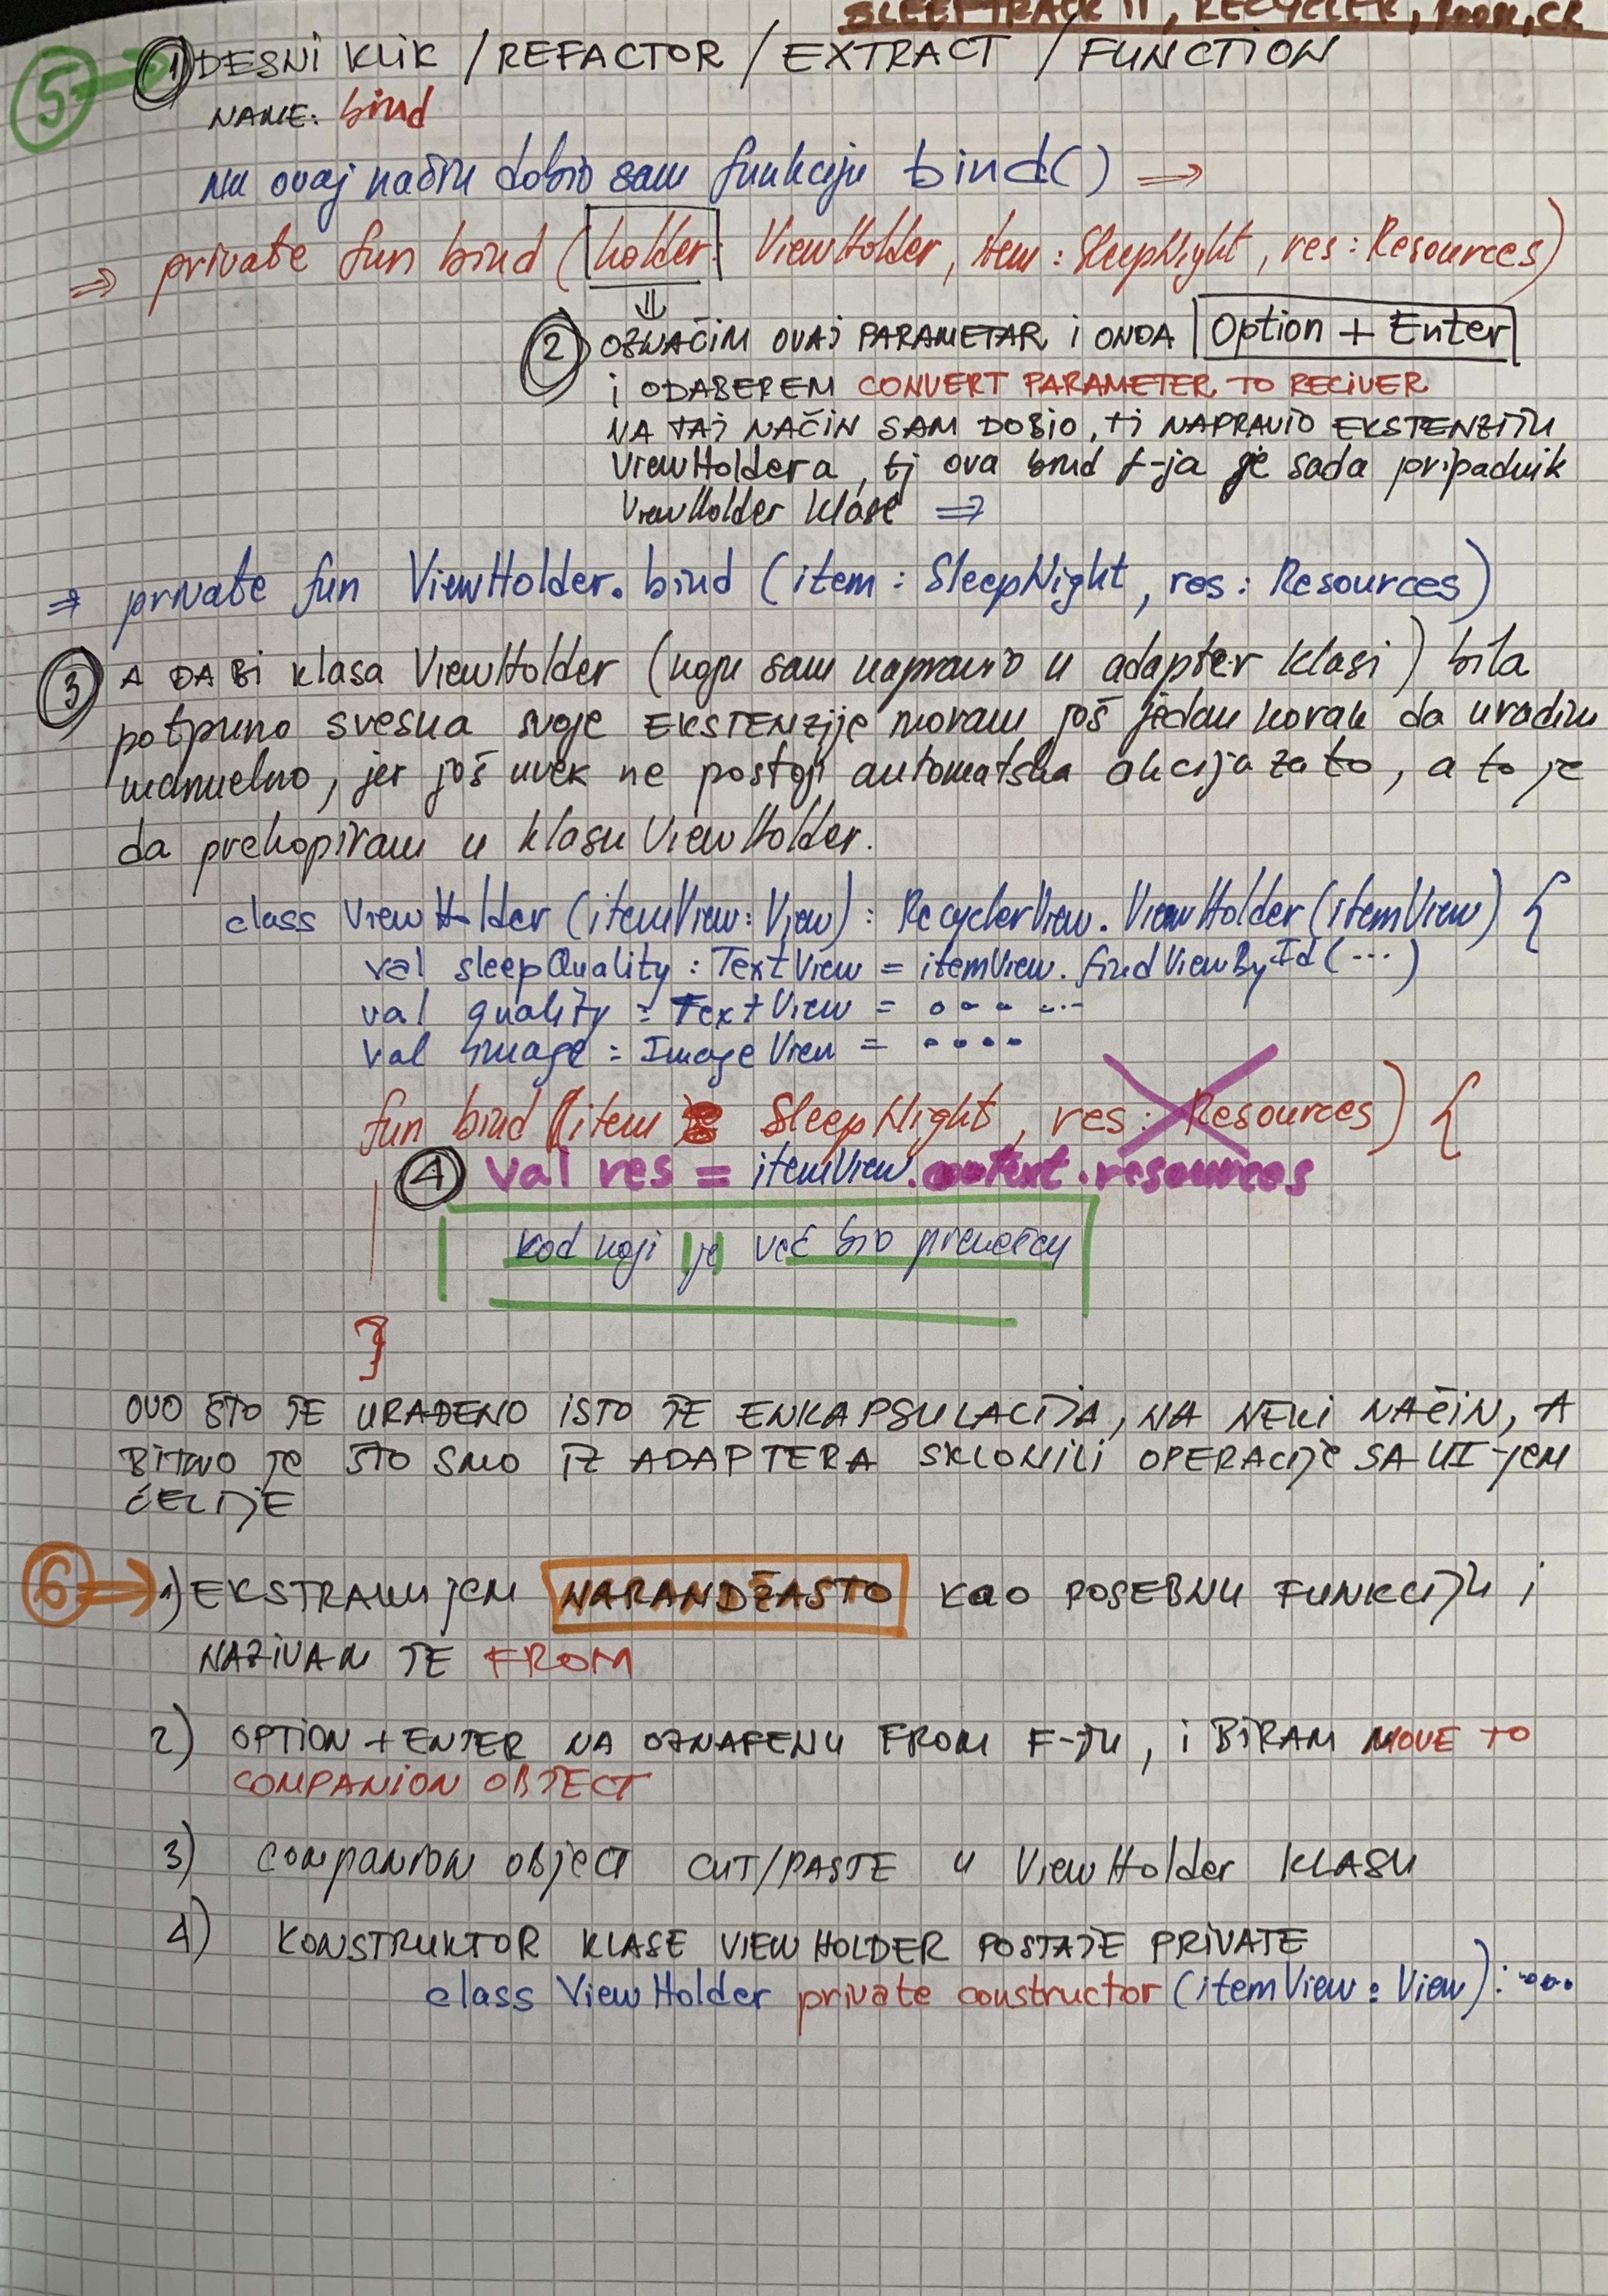 SLEEPTRACK II, RECYCLER, ROOM, CR
5 → 1) DESNI KLIK / REFACTOR / EXTRACT / FUNCTION
NAME: bind
Na ovaj način dobio sam funkciju bind() ⇒
⇒ private fun bind (holder: ViewHolder, item: SleepNight, res: Resources)
⇓
2 OZNAČIM OVAJ PARAMETAR i ONDA Option + Enter
i ODABEREM CONVERT PARAMETER TO RECIVER
NA TAJ NAČIN SAM DOBIO, TJ NAPRAVIO EKSTENZIJU
ViewHoldera, tj ova bind f-ja je sada pripadnik
ViewHolder klase ⇒
⇒ private fun ViewHolder.bind (item: SleepNight, res: Resources)
3 A DA BI klasa ViewHolder (koju sam napravio u adapter klasi) bila
potpuno svesna svoje EKSTENZije moram još jedan korak da uradim
manuelno, jer još uvek ne postoji automatska akcija za to, a to je
da prekopiram u klasu ViewHolder.
class ViewHolder (itemView: View): RecyclerView.ViewHolder(itemView) {
val sleepQuality: TextView = itemView.findViewById(...)
val quality: TextView = .... ...
val image: ImageView = ....
fun bind (item: SleepNight, res: Resources) {
4 val res = itemView.context.resources
kod koji je već bio prenešen
}
OVO ŠTO JE URAĐENO ISTO JE ENKAPSULACIJA, NA NEKI NAČIN, A
BITNO JE ŠTO SMO IZ ADAPTERA SKLONILI OPERACIJE SA UI-JEM
ĆELIJE
6 ⇒ 1) EKSTRAKUJEM NARANDŽASTO KAO POSEBNU FUNKCIJU i
NAZIVAM JE FROM
2) OPTION + ENTER NA OZNAČENU FROM F-JU, i BIRAM MOVE TO
COMPANION OBJECT
3) COMPANION OBJECT CUT/PASTE U ViewHolder KLASU
4) KONSTRUKTOR KLASE VIEWHOLDER POSTAJE PRIVATE
class ViewHolder private constructor (itemView: View): ....